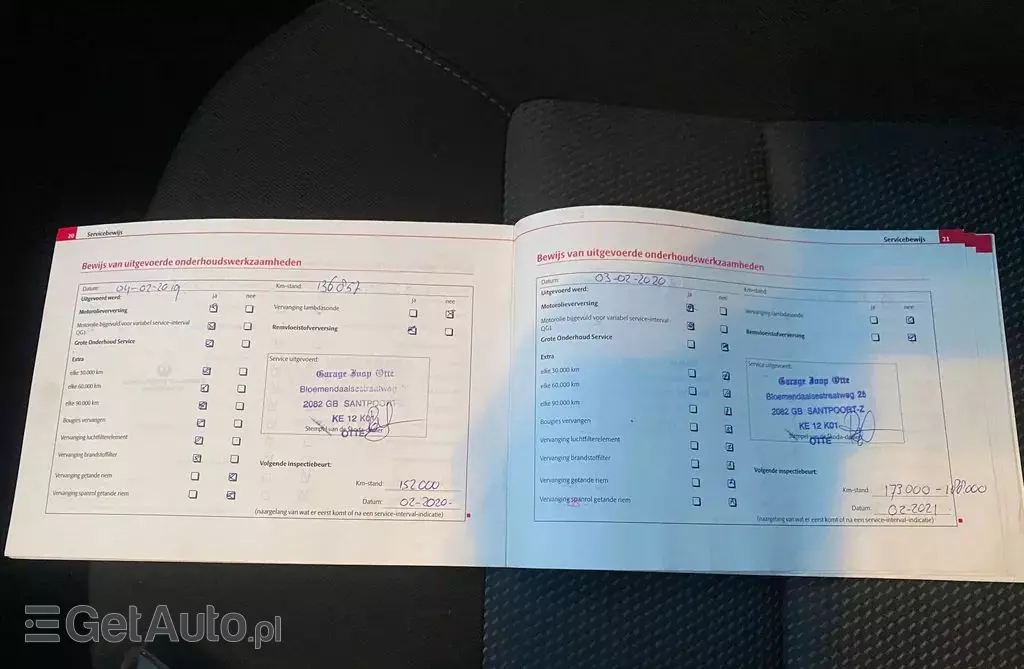 20 Servicebewijs
Bewijs van uitgevoerde onderhoudswerkzaamheden
Datum: 04-02-2019 Km-stand: 136857
Uitgevoerd werd: ja nee ja nee
Motorolieverversing
Vervanging lambdasonde
Motorolie bijgevuld voor variabel service-interval
QG1
Remvloeistofverversing
Grote Onderhoud Service
Extra
elke 30.000 km
elke 60.000 km
elke 90.000 km
Bougies vervangen
Vervanging luchtfilterelement
Vervanging brandstoffilter
Vervanging getande riem
Vervanging spanrol getande riem
Service uitgevoerd:
Garage Joop Otte
Bloemendaalsestraatweg
2082 GB SANTPOORT-
KE 12 K01
Stempel van de Skoda-dealer
OTTE
Volgende inspectiebeurt:
Km-stand: 152000
Datum: 02-2020-
(naargelang van wat er eerst komt of na een service-interval-indicatie)
Servicebewijs 21
Bewijs van uitgevoerde onderhoudswerkzaamheden
Datum: 03-02-2020 Km-stand:
Uitgevoerd werd: ja nee ja nee
Motorolieverversing
Vervanging lambdasonde
Motorolie bijgevuld voor variabel service-interval
QG1
Remvloeistofverversing
Grote Onderhoud Service
Extra
elke 30.000 km
elke 60.000 km
elke 90.000 km
Bougies vervangen
Vervanging luchtfilterelement
Vervanging brandstoffilter
Vervanging getande riem
Vervanging spanrol getande riem
Service uitgevoerd:
Garage Joop Otte
Bloemendaalsestraatweg 26
2082 GB SANTPOORT-Z
KE 12 K01
Stempel van de Skoda-dealer
OTTE
Volgende inspectiebeurt:
Km-stand: 173000 -
Datum: 02-2021
(naargelang van wat er eerst komt of na een service-interval-indicatie)
GetAuto.pl